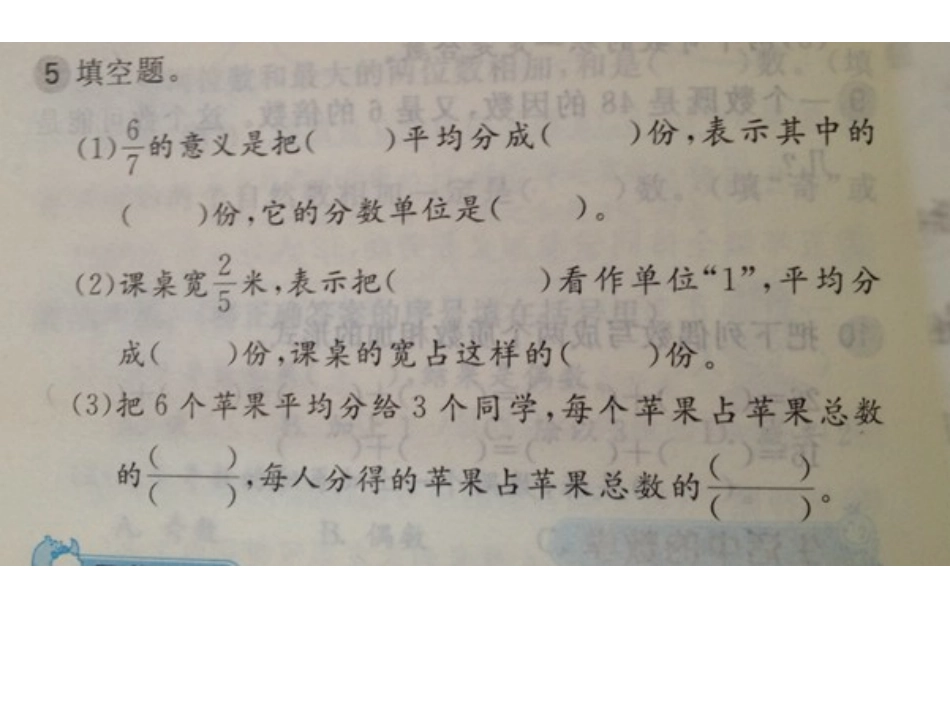 5 填空题。
(1) 6/7 的意义是把(　　)平均分成(　　)份,表示其中的
(　　)份,它的分数单位是(　　)。
(2)课桌宽 2/5 米,表示把(　　　　)看作单位“1”,平均分
成(　　)份,课桌的宽占这样的(　　)份。
(3)把 6 个苹果平均分给 3 个同学,每个苹果占苹果总数
的 (　　)/(　　) ,每人分得的苹果占苹果总数的 (　　)/(　　) 。